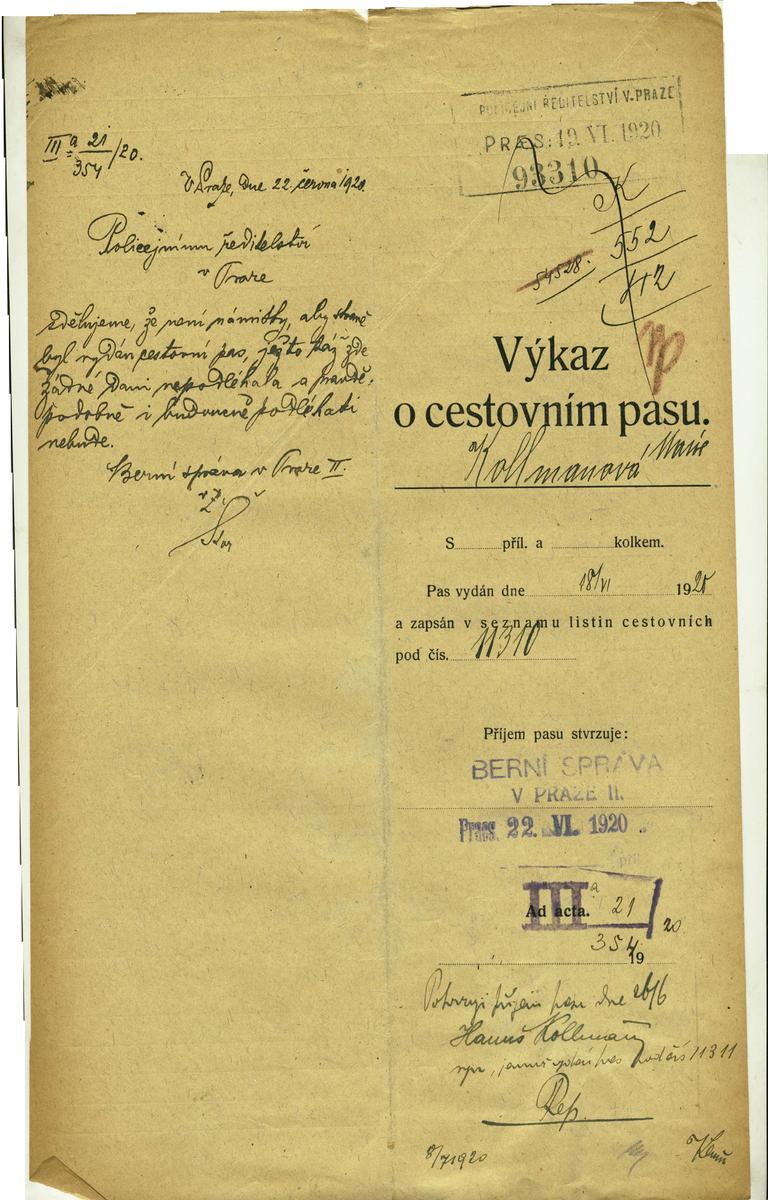 III a 21/354/20.
V Praze, dne 22. června 1920.
Policejnímu ředitelství
v Praze
Sdělujeme, že není námitky, aby straně
byl vydán cestovní pas, ježto zde
žádné dani nepodléhala a pravdě-
podobně i budoucně podléhati
nebude.
Berní správa v Praze II.
POLICEJNÍ ŘEDITELSTVÍ V PRAZE
PRAES: 19. VI. 1920
93310
K
552
54528.
412
Výkaz
o cestovním pasu.
Kollmanová Marie
S příl. a kolkem.
Pas vydán dne 18/VI 1920
a zapsán v seznamu listin cestovních
pod čís. 11310
Příjem pasu stvrzuje:
BERNÍ SPRÁVA
V PRAZE II.
Praes. 22. VI. 1920
III a 21
Ad acta.
354 20
19
Potvrzuji příjem pasu dne 26/6
Hanuš Kollmann
pod čís 11311
Rep.
8/7 1920